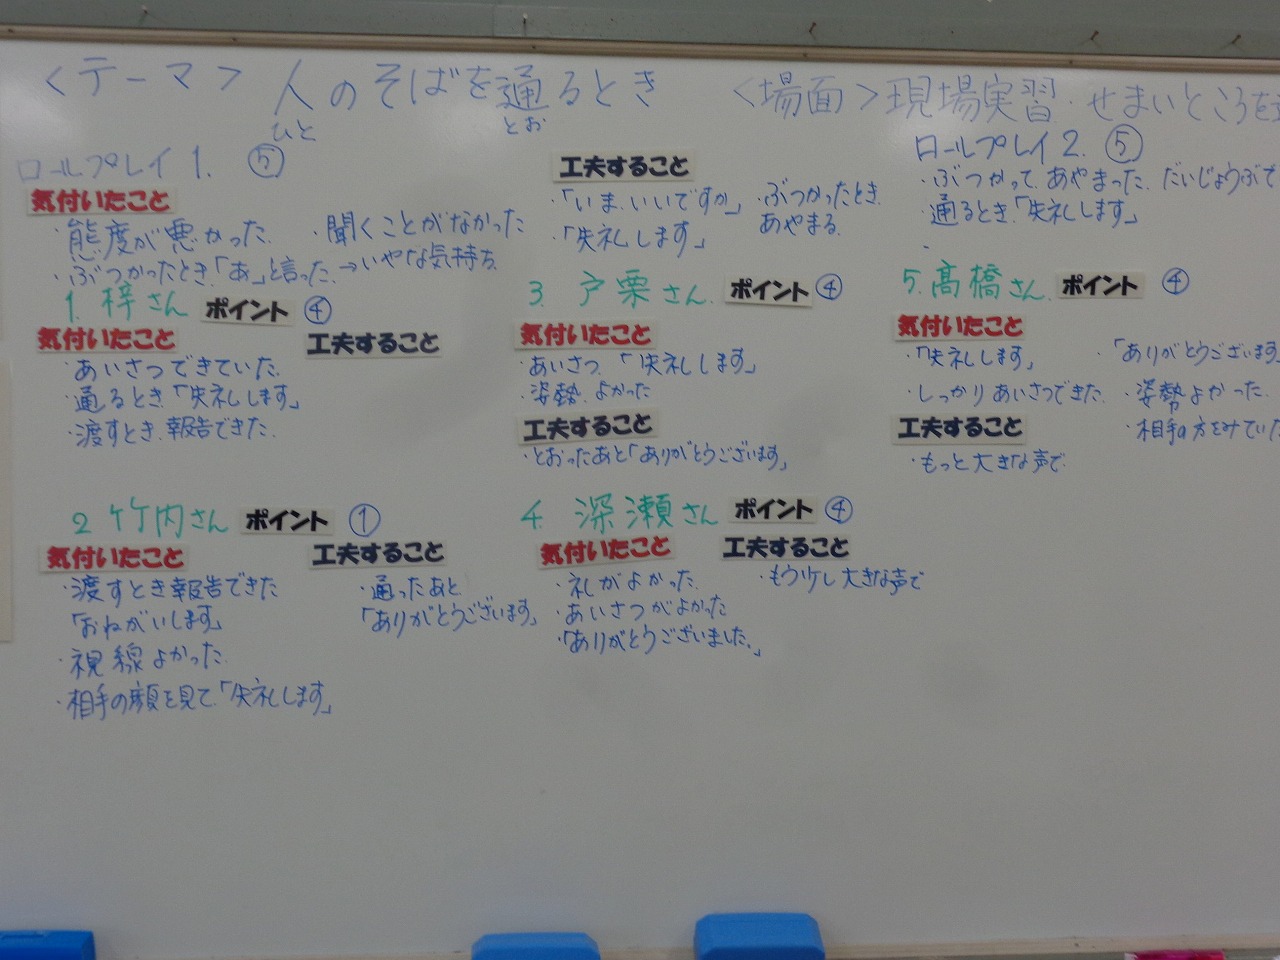 <テーマ> 人のそばを通るとき
ひと とお
<場面> 現場実習・せまいところを
ロールプレイ 1. ⑤
気付いたこと
・態度が悪かった.
・聞くことがなかった
・ぶつかったとき.「あ」と言った.→いやな気持ち.
工夫すること
・「いま.いいですか」
・ぶつかったとき.
あやまる.
・「失礼します」
ロールプレイ 2. ⑤
・ぶつかって.あやまった. だいじょうぶで
・通るとき.「失礼します」
・
1. 梓さん ポイント ④
気付いたこと
・あいさつできていた.
・通るとき.「失礼します」
・渡すとき.報告できた.
工夫すること
2. 竹内さん ポイント ①
気付いたこと
・渡すとき報告できた
「おねがいします」
・視線よかった.
・相手の顔を見て.「失礼します」
工夫すること
・通ったあと
「ありがとうございます」
3. 戸栗さん. ポイント ④
気付いたこと
・あいさつ.「失礼します」
・姿勢.よかった
工夫すること
・とおったあと「ありがとうございます」
4. 深瀬さん ポイント ④
気付いたこと
・礼がよかった.
・あいさつがよかった
・「ありがとうございました.」
工夫すること
・もう少し大きな声で
5. 髙橋さん. ポイント ④
気付いたこと
・「失礼します」
・「ありがとうございます
・しっかりあいさつできた.
・姿勢よかった.
・相手の方をみていた
工夫すること
・もっと大きな声で